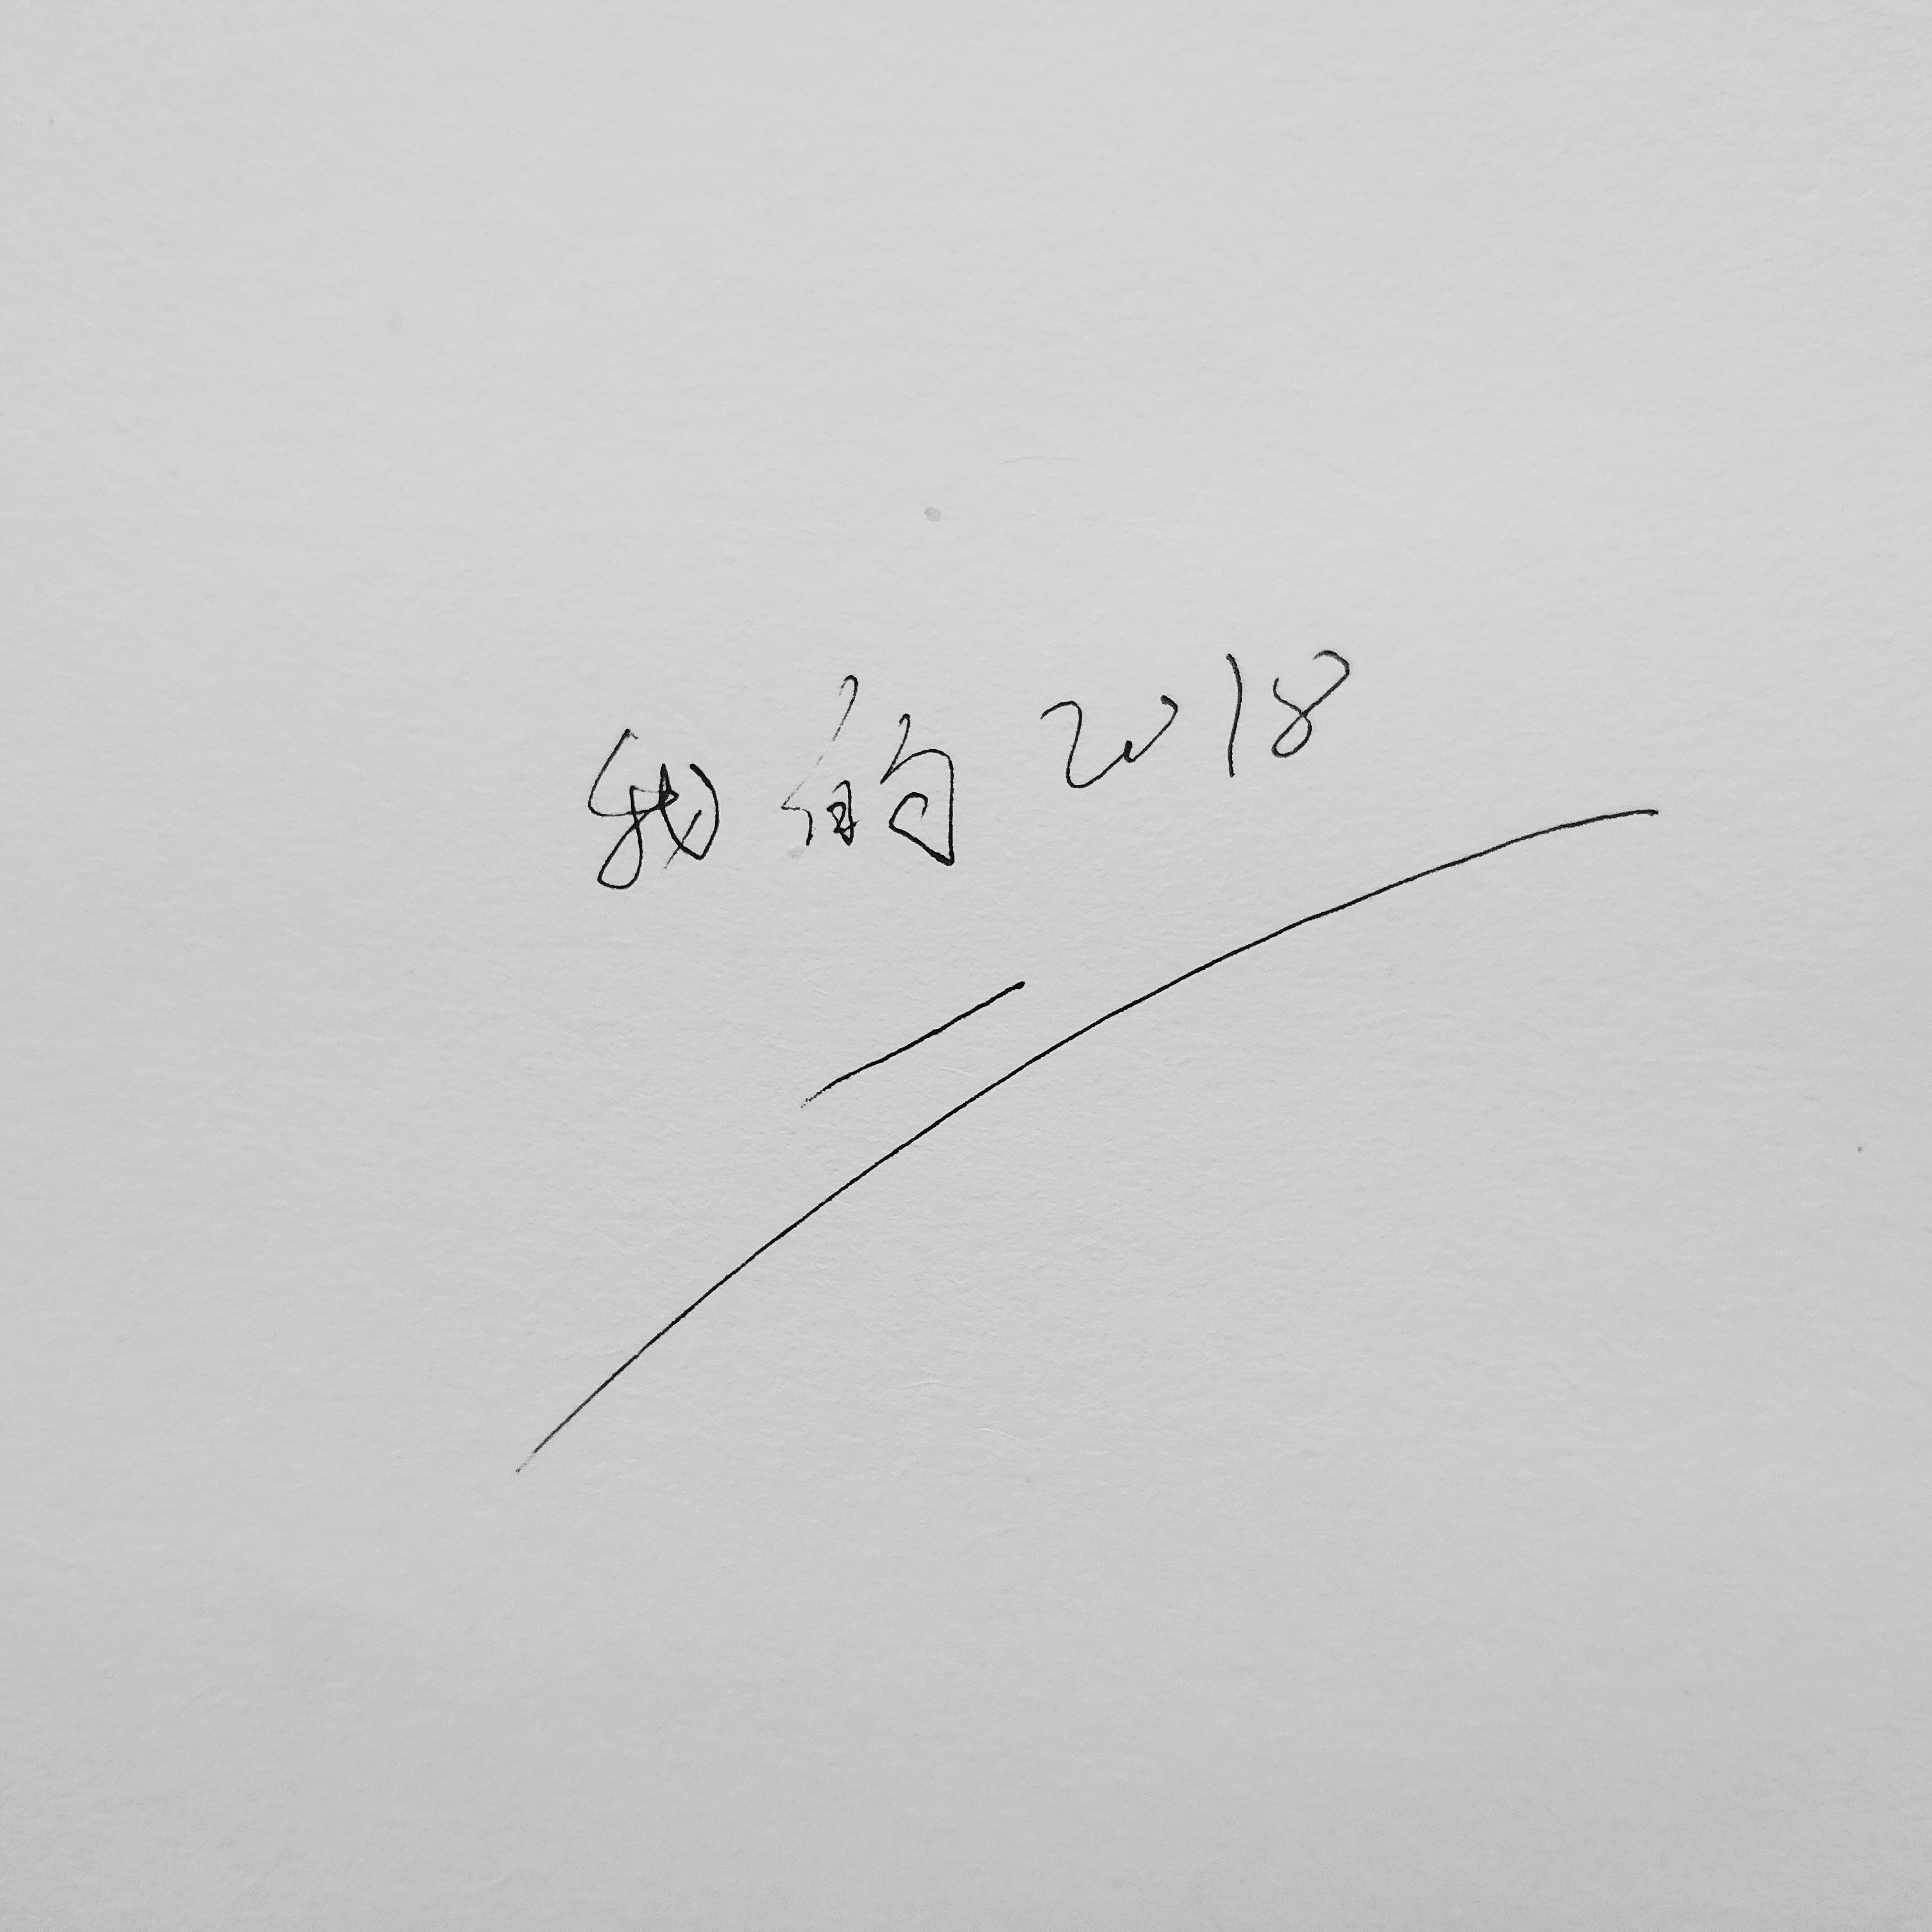 我的2018